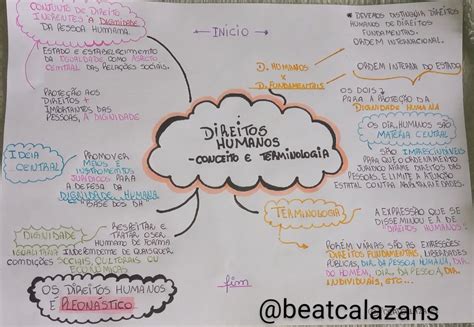 ← INICIO
CONJUNTO DE DIREITO
INERENTES A DIGNIDADE
DA PESSOA HUMANA.
ESTADO E ESTABELECIMENTO
DA IGUALDADE COMO ASPECTO
CENTRAL DAS RELAÇÕES SOCIAIS.
PROTEÇÃO AOS
DIREITOS +
IMPORTANTES DAS
PESSOAS, A DIGNIDADE
IDEIA
CENTRAL
PROMOVER
MEIOS E
INSTRUMENTOS
JURÍDICOS PARA
A DEFESA DA
DIGNIDADE HUMANA
BASE DOS DH
DIGNIDADE
RESPEITAR E
TRATAR O SER
HUMANO DE FORMA
IGUALITARIA INDEPENDENTE DE QUAISQUER
CONDIÇÕES SOCIAIS, CULTURAIS OU
ECONOMICAS
OS DIREITOS HUMANOS
É PLEONÁSTICO
DIREITOS
HUMANOS
- CONCEITO E TERMINOLOGIA
D. HUMANOS
X
D. FUNDAMENTAIS
* DEVEMOS DISTINGUIR DIREITOS
HUMANOS DE DIREITOS
FUNDAMENTAIS.
ORDEM INTERNACIONAL.
ORDEM INTERNA DO ESTADO
OS DOIS
PARA A PROTEÇÃO DA
DIGNIDADE HUMANA
OS DIR. HUMANOS SÃO
MATÉRIA CENTRAL
SÃO IMPRESCINDÍVEIS
PARA QUE O ORDENAMENTO
JURÍDICO HAJA DIREITOS DAS
PESSOAS, E LIMITE A ATUAÇÃO
ESTATAL CONTRA ARBITRARIEDADES.
TERMINOLOGIA
A EXPRESSÃO QUE SE
DISSEMINOU É A DE
DIREITOS HUMANOS.
PORÉM VÁRIAS SÃO AS EXPRESSÕES:
DIREITOS FUNDAMENTAIS, LIBERDADES
PÚBLICAS, DIR. DA PESSOA HUMANA, DIR.
DO HOMEM, DIR. DA PESSOA, DIR.
INDIVIDUAIS, ETC...
fim
@beatcalazans